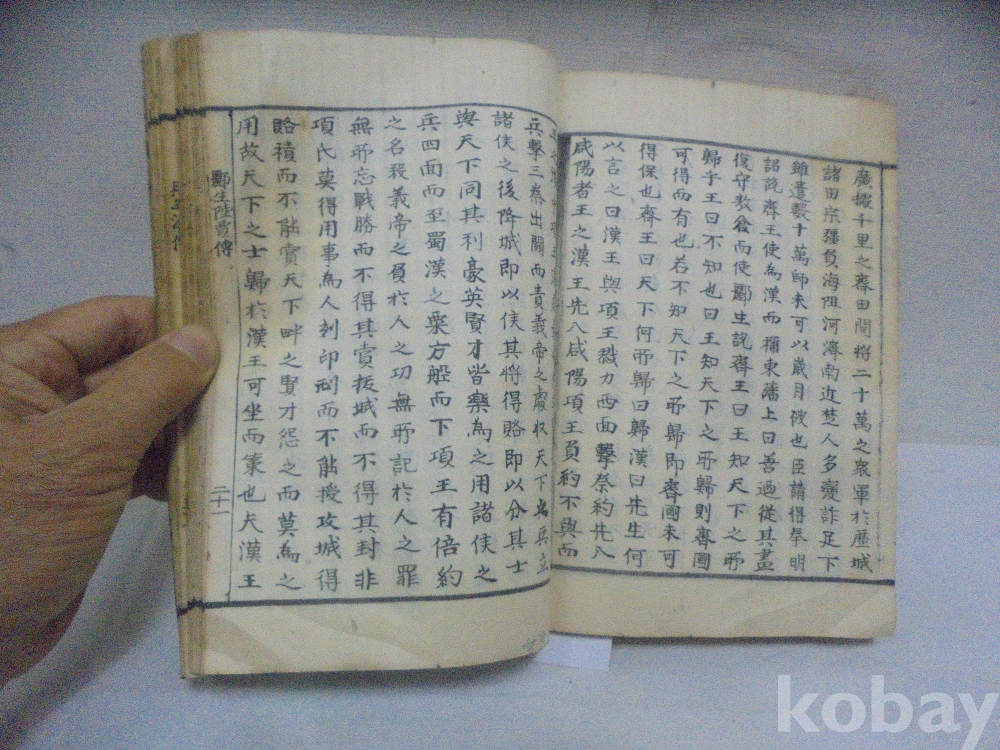 廣據千里之齊田間將二十萬之衆軍於歷城
諸田宗彊負海阻河濟南近楚人多變詐足下
雖遣數十萬師未可以歲月破也臣請得奉明
詔說齊王使爲漢而稱東藩上曰善迺從其畫
復守敖倉而使酈生說齊王曰王知天下之所
歸乎王曰不知也曰王知天下之所歸則齊國
可得而有也若不知天下之所歸即齊國未可
得保也齊王曰天下何所歸曰歸漢曰先生何
以言之曰漢王與項王戮力西面擊秦約先入
咸陽者王之漢王先入咸陽項王負約不與而
王之漢中項王
兵擊三秦出關而責義帝之處收天下之兵立
諸侯之後降城即以侯其將得賂即以分其士
與天下同其利豪英賢才皆樂爲之用諸侯之
兵四面而至蜀漢之粟方船而下項王有倍約
之名殺義帝之負於人之功無所記於人之罪
無所忘戰勝而不得其賞拔城而不得其封非
項氏莫得用事爲人刻印刓而不能授攻城得
賂積而不能賞天下畔之賢才怨之而莫爲之
用故天下之士歸於漢王可坐而策也夫漢王
酈生陸賈傳
二十一
kobay